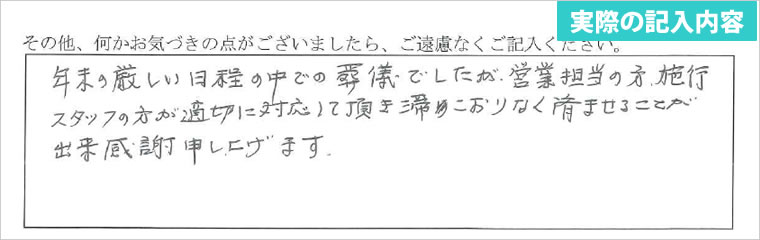 実際の記入内容
その他、何かお気づきの点がございましたら、ご遠慮なくご記入ください。
年末の厳しい日程の中での葬儀でしたが、営業担当の方、施行
スタッフの方が適切に対応して頂き滞りなく済ませることが
出来感謝申し上げます。